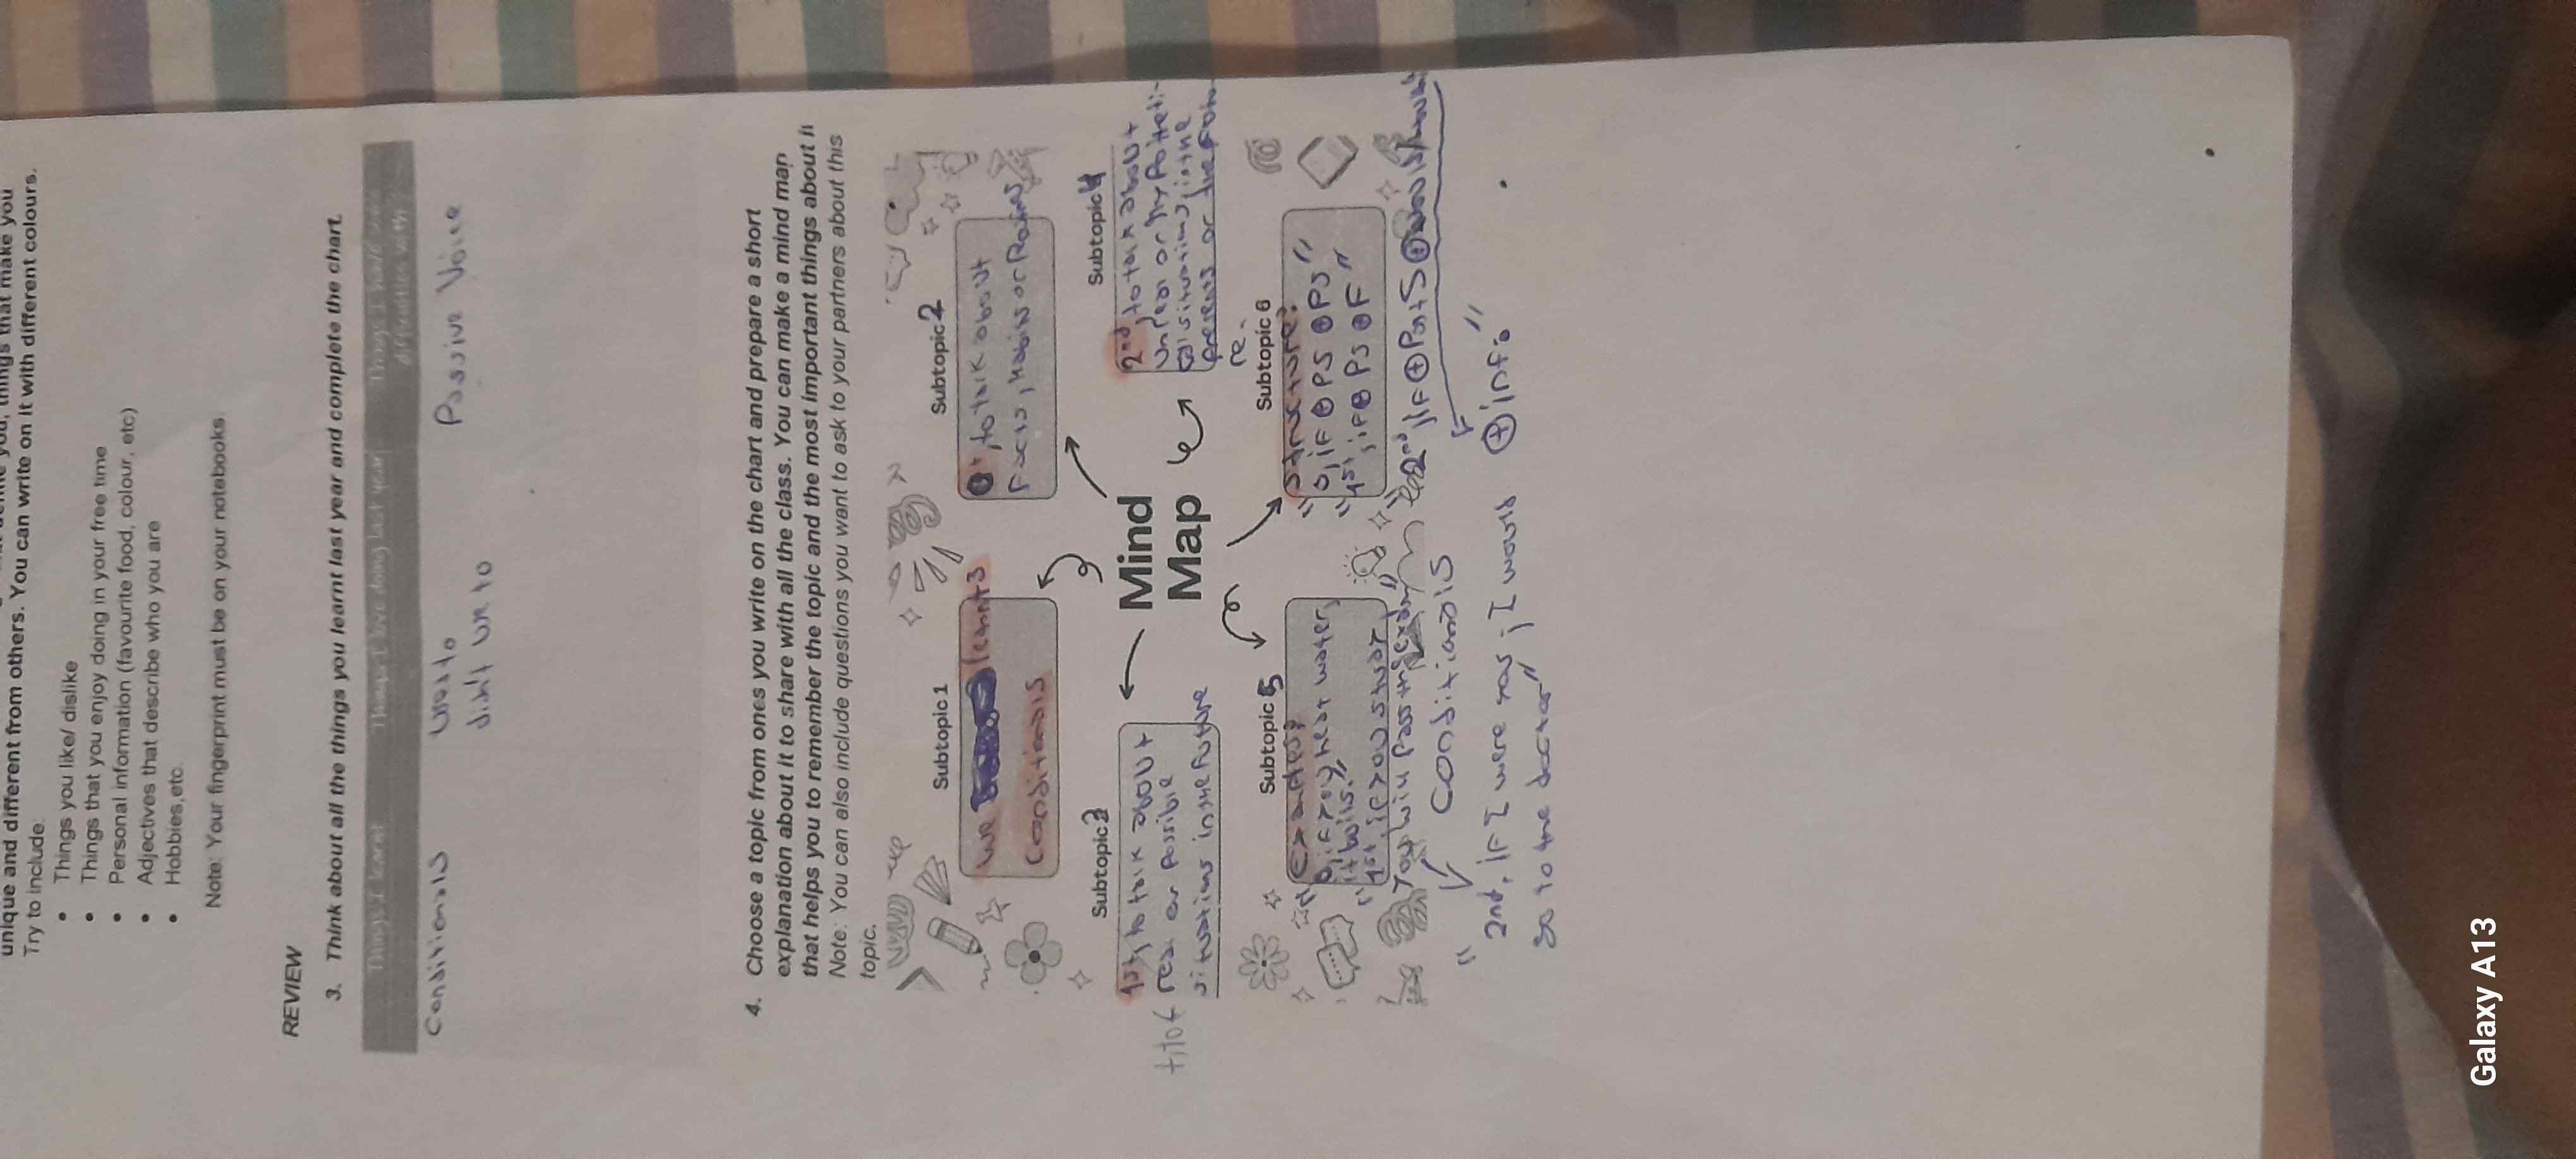 unique and different from others. You can write on it with different colours.
Try to include
• Things you like/ dislike
• Things that you enjoy doing in your free time
• Personal information (favourite food, colour, etc)
• Adjectives that describe who you are
• Hobbies,etc.
Note: Your fingerprint must be on your notebooks
REVIEW
3. Think about all the things you learnt last year and complete the chart.
Things I learnt
Conditionals
Used to
didn't use to
Passive Voice
4. Choose a topic from ones you write on the chart and prepare a short
explanation about it to share with all the class. You can make a mind map
that helps you to remember the topic and the most important things about
Note: You can also include questions you want to ask to your partners about this
topic.
Subtopic 1
We learnts
Conditionals
Subtopic 2
0, to talk about
Facts, habits or
Mind
Map
Subtopic 3
1st, to talk about
real or possible
situations in the future
Subtopic 4
2nd, to talk about
unreal or hypoteti-
cal situations, in the
present or the futu-
re.
Subtopic 5
0, if you heat water,
it boils."
1st if you study,
You will pass the exam"
Conditionals
"2nd, if I were you, I would
go to the doctor"
Subtopic 6
Structure:
"0, if ⊕ PS ⊕ PS"
"1st, if ⊕ PS ⊕ F"
2nd, if ⊕ Past S ⊕ would
⊕ inf."
Galaxy A13